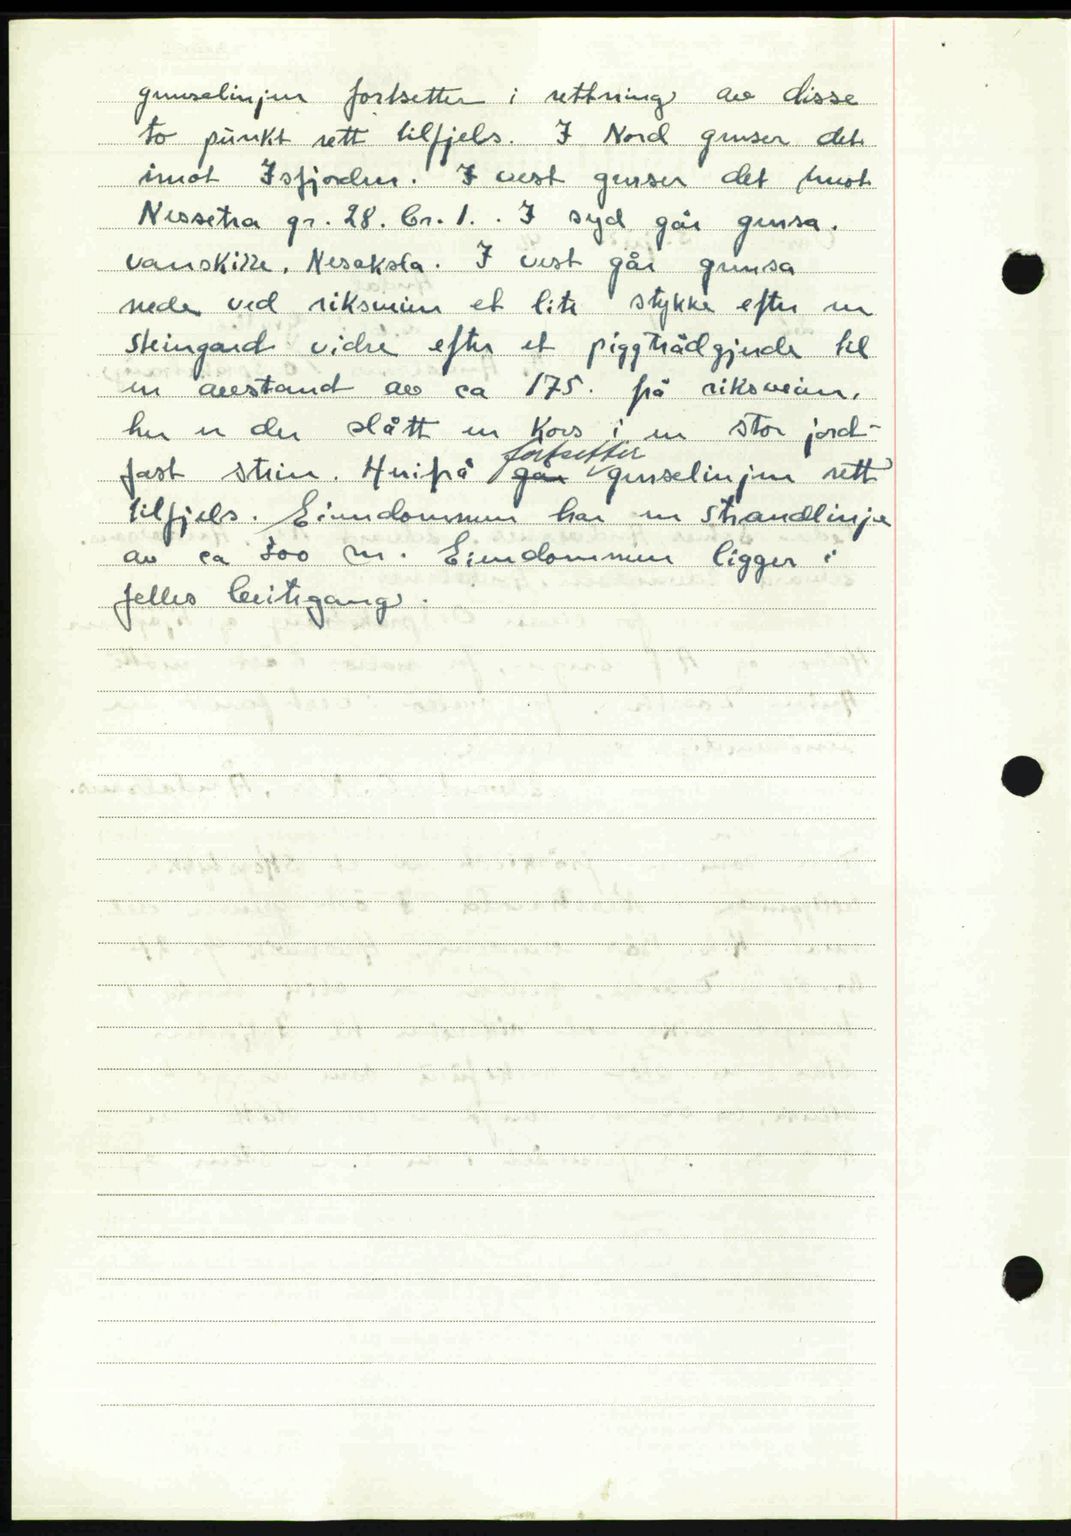 grenselinjen fortsetter i rettning av disse
to punkt rett tilfjels. I Nord grenser det
imot Isfjorden. I vest grenser det imot
Nessetra gr. 28. br. 1. . I syd går grensa.
vanskille, Nesaksla. I vest går grensa
neda ved riksveien et lite stykke efter en
Steingard vidre efter et piggtrådgjerde til
en avstand av ca 175. frå riksveien,
her er der slått en Kors i en stor jord-
fast stein. Herifrå går fortsetter grenselinjen rett
tilfjels. Eiendommen har en Strandlinje
av ca 300 m. Eiendommen ligger i
felles beitegang.